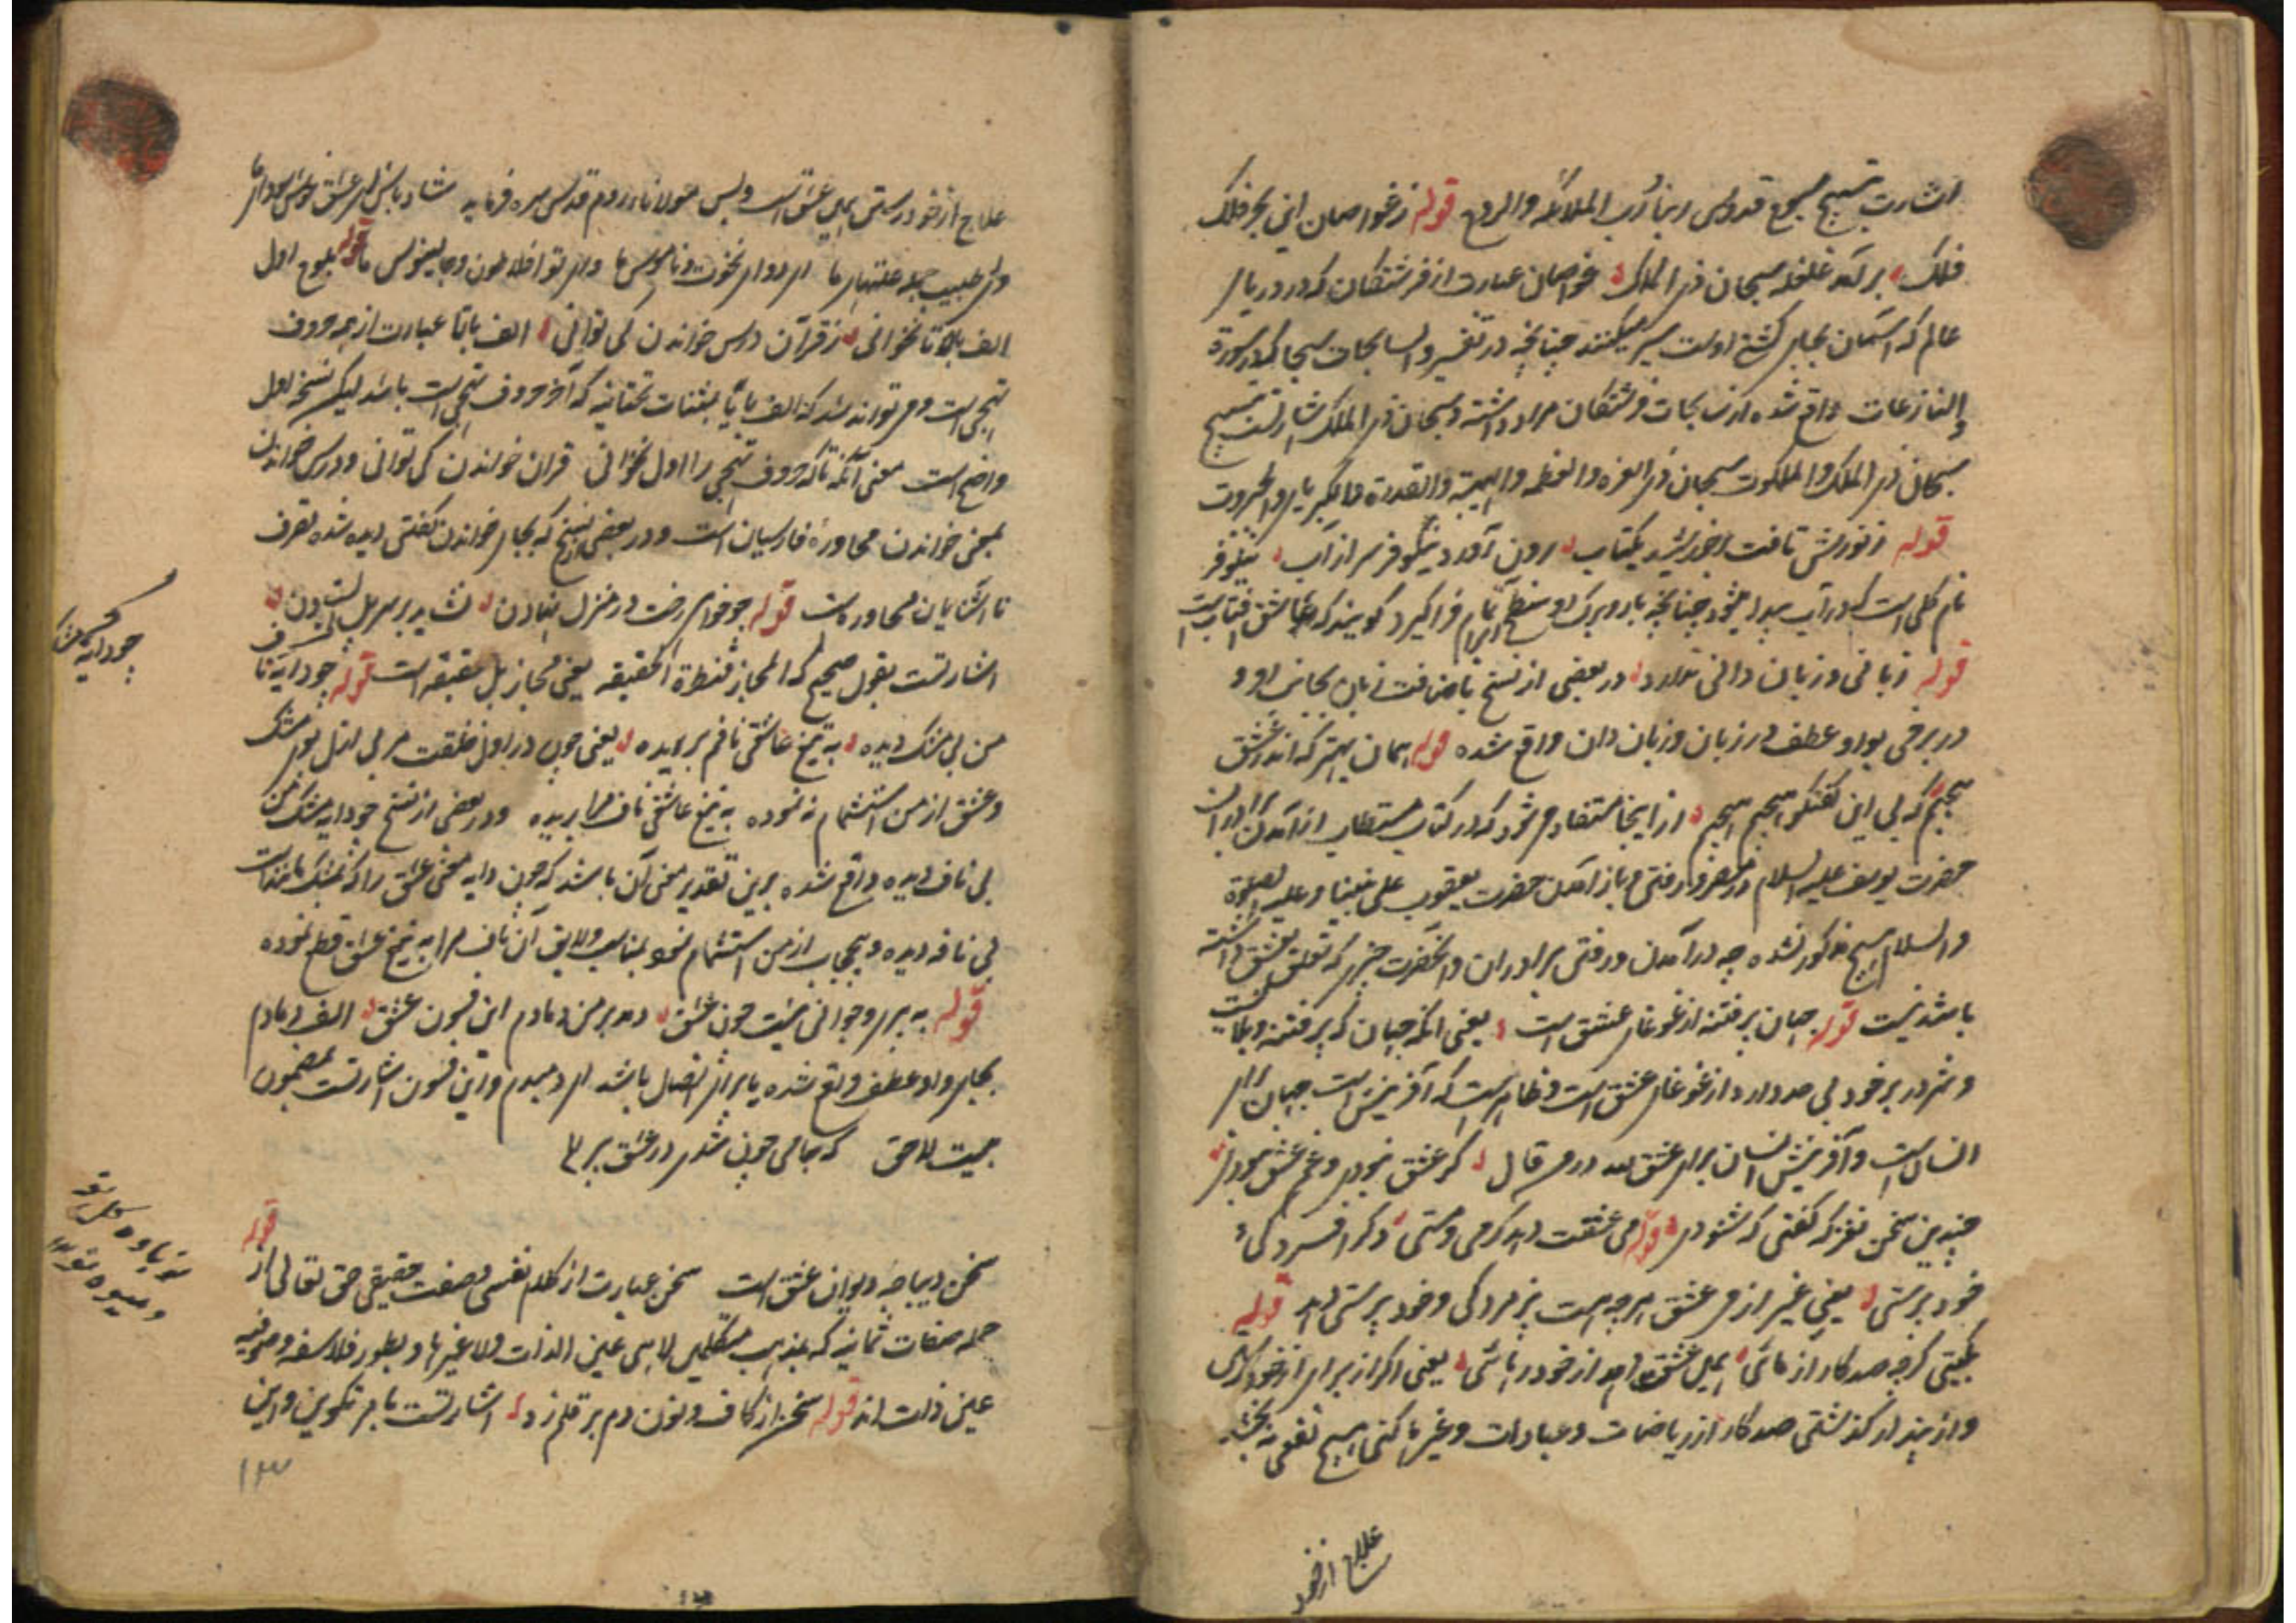 اشارت بتسبیح سبوح قدوس ربنا و رب الملائکه والروح قوله زغواصان این بحر فلک
فلک برآمد غلغله سبحان ذی الملک غواصان عبارت از فرشتگان که در دریای
عالم که آسمان بجای کشتی اوست سیر میکنند چنانچه در تفسیر والسابحات سبحا که در سوره
والنازعات واقع شده از سابحات فرشتگان مراد داشته و سبحان ذی الملک اشارتست بتسبیح
سبحان ذی الملک والملکوت سبحان ذی العزة والعظمه والهیبة والقدرة والکبریا والجبروت
قوله ز نورش تافت بر خورشید یکتاب برون آورد نیلوفر سر از آب نیلوفر
نام گلی است که در آب پیدا میشود چنانچه بار و برگ او سطح آب را تمام فراگیرد گویند که عاشق آفتاب است
قوله زبانی و زبان دانی ندارد در بعضی از نسخ باضافت زبان بجانب او و
در برخی بواو عطف در زبان و زبان دان واقع شده قوله همان بهتر که اندر عشق
پیچیم که بی این گفتگو هیچیم هیچیم ازاینجا مستفاد می شود که در کتاب مستطاب از آمدن برادران
حضرت یوسف علیه السلام در مصر و رفتن و باز آمدن حضرت یعقوب علی نبینا و علیه الصلوة
والسلام هیچ مذکور نشده چه در آمدن و رفتن برادران و آنحضرت چیزی که تعلق بعشق داشته
باشد نیست قوله جهان پر فتنه از غوغای عشق است یعنی آنکه جهان که پر فتنه و بلاست
و شر در بر خود بی حد دارد از غوغای عشق است و ظاهر است که آفرینش جهان برای
انسان است و آفرینش انسان برای عشق در هر قال گر عشق نبودی و غم عشق نبودی
چندین سخن نغز که گفتی که شنودی قوله می عشقت دهد گرمی و مستی دگر افسردگی و
خود پرستی یعنی غیر از می عشق هرچه هست پژمردگی و خود پرستی دهد قوله
بگیتی گرچه صد کار آزمائی همین عشقت دهد از خود رهائی یعنی اگر از برای از خود رهائی
و از پندار گذشتن صد کار از ریاضات و عبادات و غیرها کنی هیچ نفعی نه بخشد
علاج از خود
علاج از خود رستن همین عشق است و بس مولانای روم قدس سره فرماید شاد باش ای عشق خوش سودای ما
وی طبیب جمله علتهای ما ای دوای نخوت و ناموس ما وی تو افلاطون و جالینوس ما قوله بلوح اول
الف بی تا نخوانی ز قرآن درس خواندن کی توانی الف با تا عبارت از همه حروف
تهجی است و می تواند شد که الف با یا بمثنات تحتانیه که آخر حروف تهجی است باشد لیکن نسخه اول
واضح است معنی آنکه تا که حروف تهجی را اول نخوانی قرآن خواندن کی توانی و درس خواندن
بمعنی خواندن محاورۀ فارسیان است و در بعضی نسخ که بجای خواندن گفتن دیده شده تصرف
نا آشنایان محاوره است قوله چو خواهی رخت در منزل نهادن نشاید بر سر پل ایستادن
اشارتست بقول صحیح که المجاز قنطرة الحقیقه یعنی مجاز پل حقیقه است قوله چو دایه نا
من بی مشک دیده به تیغ عاشقی نافم بریده یعنی چون در اول خلقت مربی ازل بوی مشک
و عشق از من استشمام نه نموده به تیغ عاشقی ناف مرا بریده و در بعضی از نسخ چو دایه مشک من
بی ناف دیده واقع شده برین تقدیر معنی آن باشد که چون دایه معنی عشق را که بمشک مانند است
بی نافه دیده و بیحجاب از من استشمام نمود بمناسب ولایق آن ناف مرا به تیغ عشق قطع نموده
قوله به پیری و جوانی نیست چون عشق دمد بر من دمادم این فسون عشق الف دمادم
بجای واو عطف واقع شده یا برای اتصال باشد ای دمبدم و این فسون اشارتست بمضمون
بیت لاحق که جامی چون شدی در عشق پیر
قوله
سخن دیباچه دیوان عشق است سخن عبارت از کلام نفسی و صفت حقیقی حق تعالی از
جمله صفات ثمانیه که بمذهب متکلمین لاهی عین الذات ولا غیرها و بطور فلاسفه و صوفیه
عین ذات اند قوله سخن از کاف و نون دم بر قلم زد اشارتست بامر تکوین و این
۱۳
چو دایه مشک
نوباوه
و میوه نو
۱۳